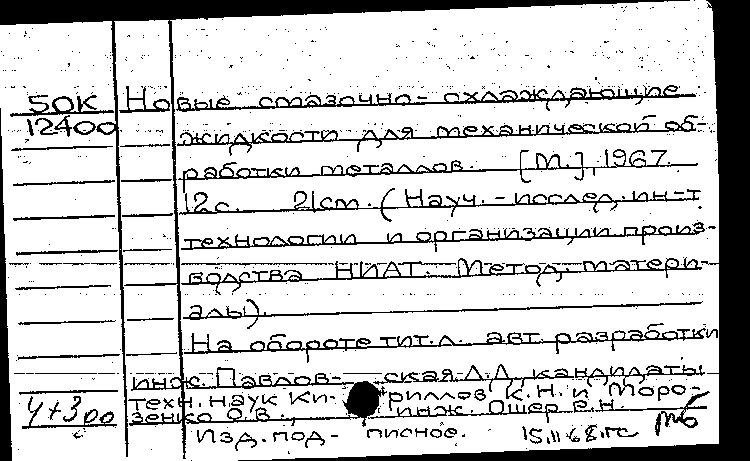 50К Новые смазочно-охлаждающие
12400 жидкости для механической об-
работки металлов. [М.], 1967.
12с. 21см. (Науч.-послед. ин-т
технологии и организации произ-
водства НИАТ. Метод. матери-
алы).
На обороте тит.л. авт. разработки
инж. Павлов- ская Л.Д., кандидаты
техн. наук Ки- риллов К.Н. и Моро-
зенко О.В., инж. Ошер Р.Н.
Изд. под- писное.
4+300
15.II 68.